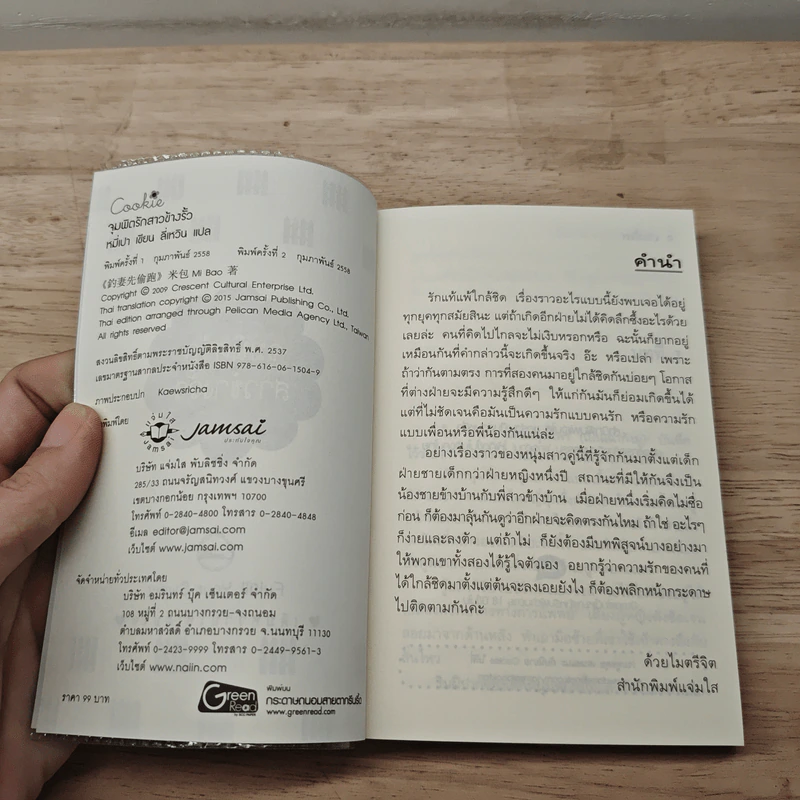 Cookie
จุมพิตรักสาวข้างรั้ว
หมี่เปา เขียน ลี่เหวิน แปล
พิมพ์ครั้งที่ 1 กุมภาพันธ์ 2558 พิมพ์ครั้งที่ 2 กุมภาพันธ์ 2558
《釣妻先偷跑》米包 Mi Bao 著
Copyright © 2009 Crescent Cultural Enterprise Ltd.
Thai translation copyright © 2015 Jamsai Publishing Co., Ltd.
Thai edition arranged through Pelican Media Agency Ltd., Taiwan
All rights reserved
สงวนลิขสิทธิ์ตามพระราชบัญญัติลิขสิทธิ์ พ.ศ. 2537
เลขมาตรฐานสากลประจำหนังสือ ISBN 978-616-06-1504-9
ภาพประกอบปก Kaewsricha
พิมพ์โดย
แจ่มใส
Jamsai
Jamsai
ประทับใจคุณ
บริษัท แจ่มใส พับลิชชิ่ง จำกัด
285/33 ถนนจรัญสนิทวงศ์ แขวงบางขุนศรี
เขตบางกอกน้อย กรุงเทพฯ 10700
โทรศัพท์ 0-2840-4800 โทรสาร 0-2840-4848
อีเมล editor@jamsai.com
เว็บไซต์ www.jamsai.com
จัดจำหน่ายทั่วประเทศโดย
บริษัท อมรินทร์ บุ๊ค เซ็นเตอร์ จำกัด
108 หมู่ที่ 2 ถนนบางกรวย-จงถนอม
ตำบลมหาสวัสดิ์ อำเภอบางกรวย จ.นนทบุรี 11130
โทรศัพท์ 0-2423-9999 โทรสาร 0-2449-9561-3
เว็บไซต์ www.naiin.com
ราคา 99 บาท
Green
Read
พิมพ์บน
กระดาษถนอมสายตากรีนรี้ด
www.greenread.com
คำนำ
รักแท้แพ้ใกล้ชิด เรื่องราวอะไรแบบนี้ยังพบเจอได้อยู่
ทุกยุคทุกสมัยสินะ แต่ถ้าเกิดอีกฝ่ายไม่ได้คิดลึกซึ้งอะไรด้วย
เลยล่ะ คนที่คิดไปไกลจะไม่เงิบหรอกหรือ ฉะนั้นก็ยากอยู่
เหมือนกันที่คำกล่าวนี้จะเกิดขึ้นจริง อ๊ะ หรือเปล่า เพราะ
ถ้าว่ากันตามตรง การที่สองคนมาอยู่ใกล้ชิดกันบ่อยๆ โอกาส
ที่ต่างฝ่ายจะมีความรู้สึกดีๆ ให้แก่กันมันก็ย่อมเกิดขึ้นได้
แต่ที่ไม่ชัดเจนคือมันเป็นความรักแบบคนรัก หรือความรัก
แบบเพื่อนหรือพี่น้องกันแน่ล่ะ
อย่างเรื่องราวของหนุ่มสาวคู่นี้ที่รู้จักกันมาตั้งแต่เด็ก
ฝ่ายชายเด็กกว่าฝ่ายหญิงหนึ่งปี สถานะที่มีให้กันจึงเป็น
น้องชายข้างบ้านกับพี่สาวข้างบ้าน เมื่อฝ่ายหนึ่งเริ่มคิดไม่ซื่อ
ก่อน ก็ต้องมาลุ้นกันดูว่าอีกฝ่ายจะคิดตรงกันไหม ถ้าใช่ อะไรๆ
ก็ง่ายและลงตัว แต่ถ้าไม่ ก็ยังต้องมีบทพิสูจน์บางอย่างมา
ให้พวกเขาทั้งสองได้รู้ใจตัวเอง อยากรู้ว่าความรักของคนที่
ได้ใกล้ชิดมาตั้งแต่ต้นจะลงเอยยังไง ก็ต้องพลิกหน้ากระดาษ
ไปติดตามกันค่ะ
ด้วยไมตรีจิต
สำนักพิมพ์แจ่มใส